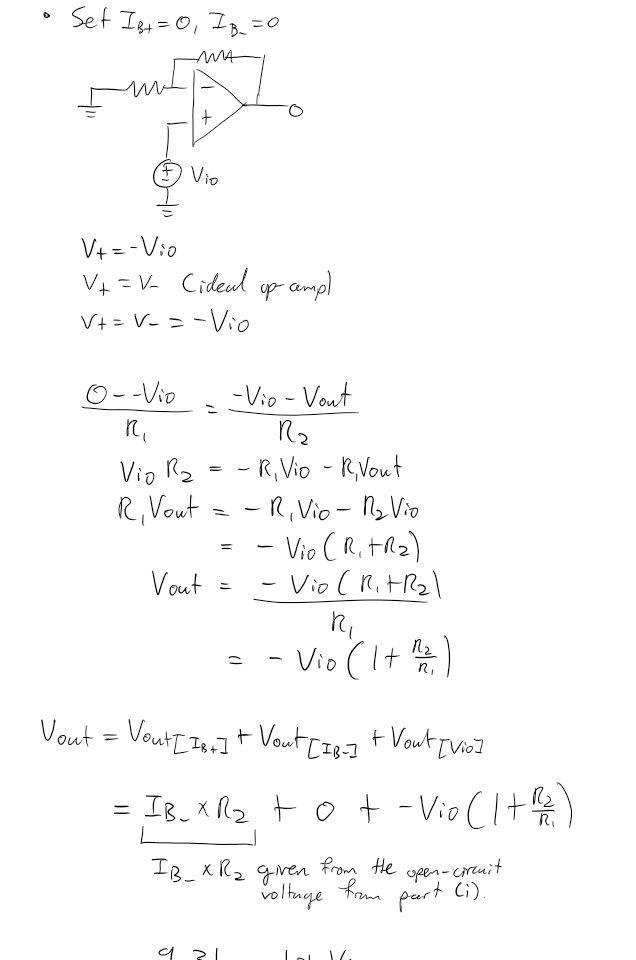 • Set I_B+ = 0, I_B- = 0
−
+
O
+
−
Vio
V+ = -Vio
V+ = V- (ideal op-amp)
V+ = V- = -Vio
(0 - -Vio)/R1 = (-Vio - Vout)/R2
Vio R2 = - R1Vio - R1Vout
R1Vout = - R1Vio - R2Vio
= - Vio (R1 + R2)
Vout = (- Vio (R1 + R2))/R1
= - Vio (1 + R2/R1)
Vout = Vout[I_B+] + Vout[I_B-] + Vout[Vio]
= I_B- × R2 + 0 + -Vio (1 + R2/R1)
I_B- × R2 given from the open-circuit
voltage from part (i).